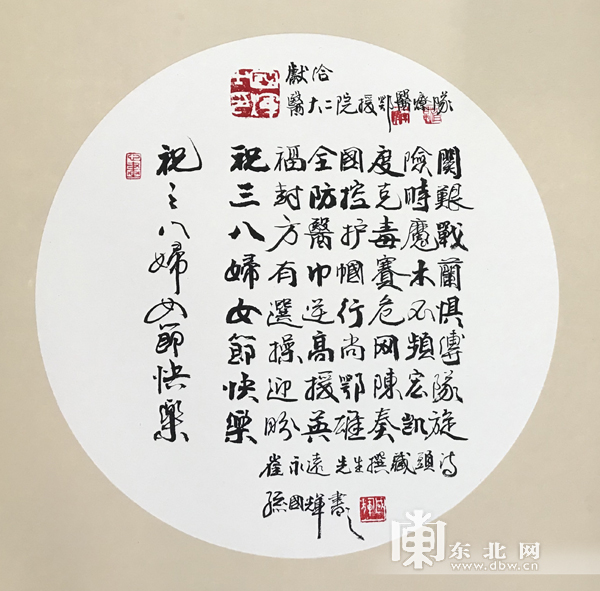 獻给
醫大二院援鄂醫療隊
祝福全國度險關
三封防控克時艱
八方醫护毒魔戰
婦有巾幗賽木蘭
女選逆行危不懼
節操高尚网頻縛
快迎援鄂陳宏隊
樂盼英雄奏凱旋
崔永遠先生撰藏頭詩
孫國輝書
祝三八婦女節快樂
东北网
www.dbw.cn